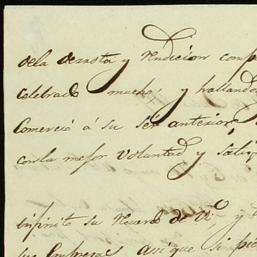 dela derrota y rendicion comp
celebrado mucho, y hallando
Comercio á su ser anterior,
con la mejor Voluntad y
infinito su recuerdo de V.
sus Empresas asi que